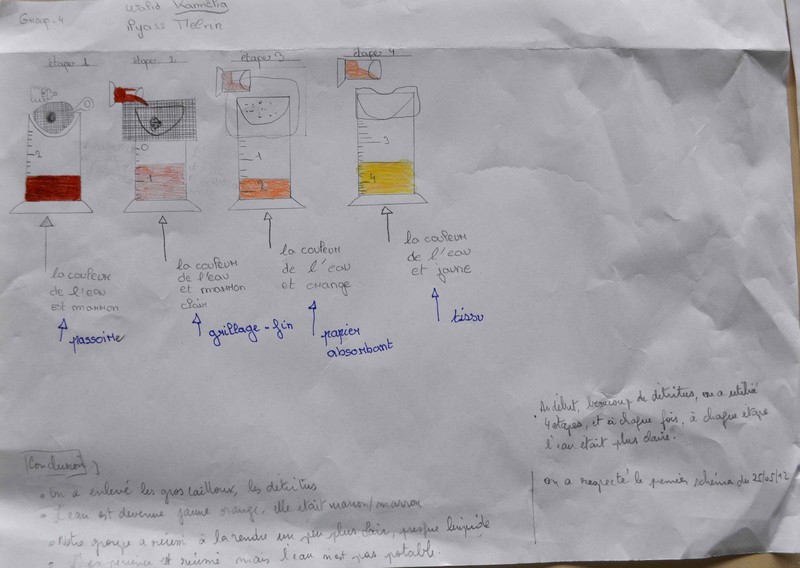 Group. 4
Walid Kamélia
Ryass
étape 1
étape 2
étape 3
étape 4
2
0
1
1
2
3
4
la couleur
de l'eau
est marron
passoire
la couleur
de l'eau
et marron
clair
grillage-fin
la couleur
de l'eau
et orange
papier
absorbant
la couleur
de l'eau
et jaune
tissu
Au début, beaucoup de détritus, on a utilisé
4 étapes, et à chaque fois, à chaque étape
l'eau était plus claire.
on a respecté le premier schéma du 25/05/12
[Conclusion]
• On a enlevé les gros cailloux, les détritus
• L'eau est devenue jaune orange, elle était maron/marron
• Notre groupe a réussi à la rendre un peu plus clair, presque limpide
• L'expérience réussié mais l'eau n'est pas potable.